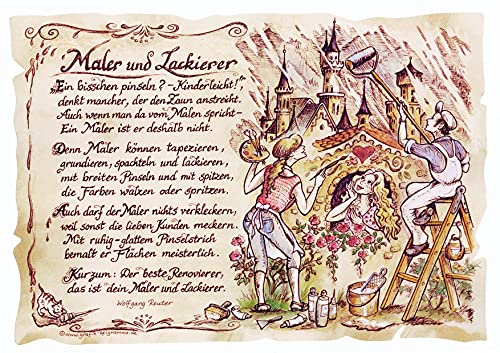 Maler und Lackierer
„Ein bisschen pinseln? – Kinderleicht!",
denkt mancher, der den Zaun anstreicht.
Auch wenn man da vom Malen spricht-
Ein Maler ist er deshalb nicht.
Denn Maler können tapezieren,
grundieren, spachteln und lackieren,
mit breiten Pinseln und mit spitzen,
die Farben walzen oder spritzen.
Auch darf der Maler nichts verkleckern,
weil sonst die lieben Kunden meckern.
Mit ruhig-glattem Pinselstrich
bemalt er Flächen meisterlich.
Kurzum: Der beste Renovierer,
das ist dein Maler und Lackierer.
Wolfgang Reuter